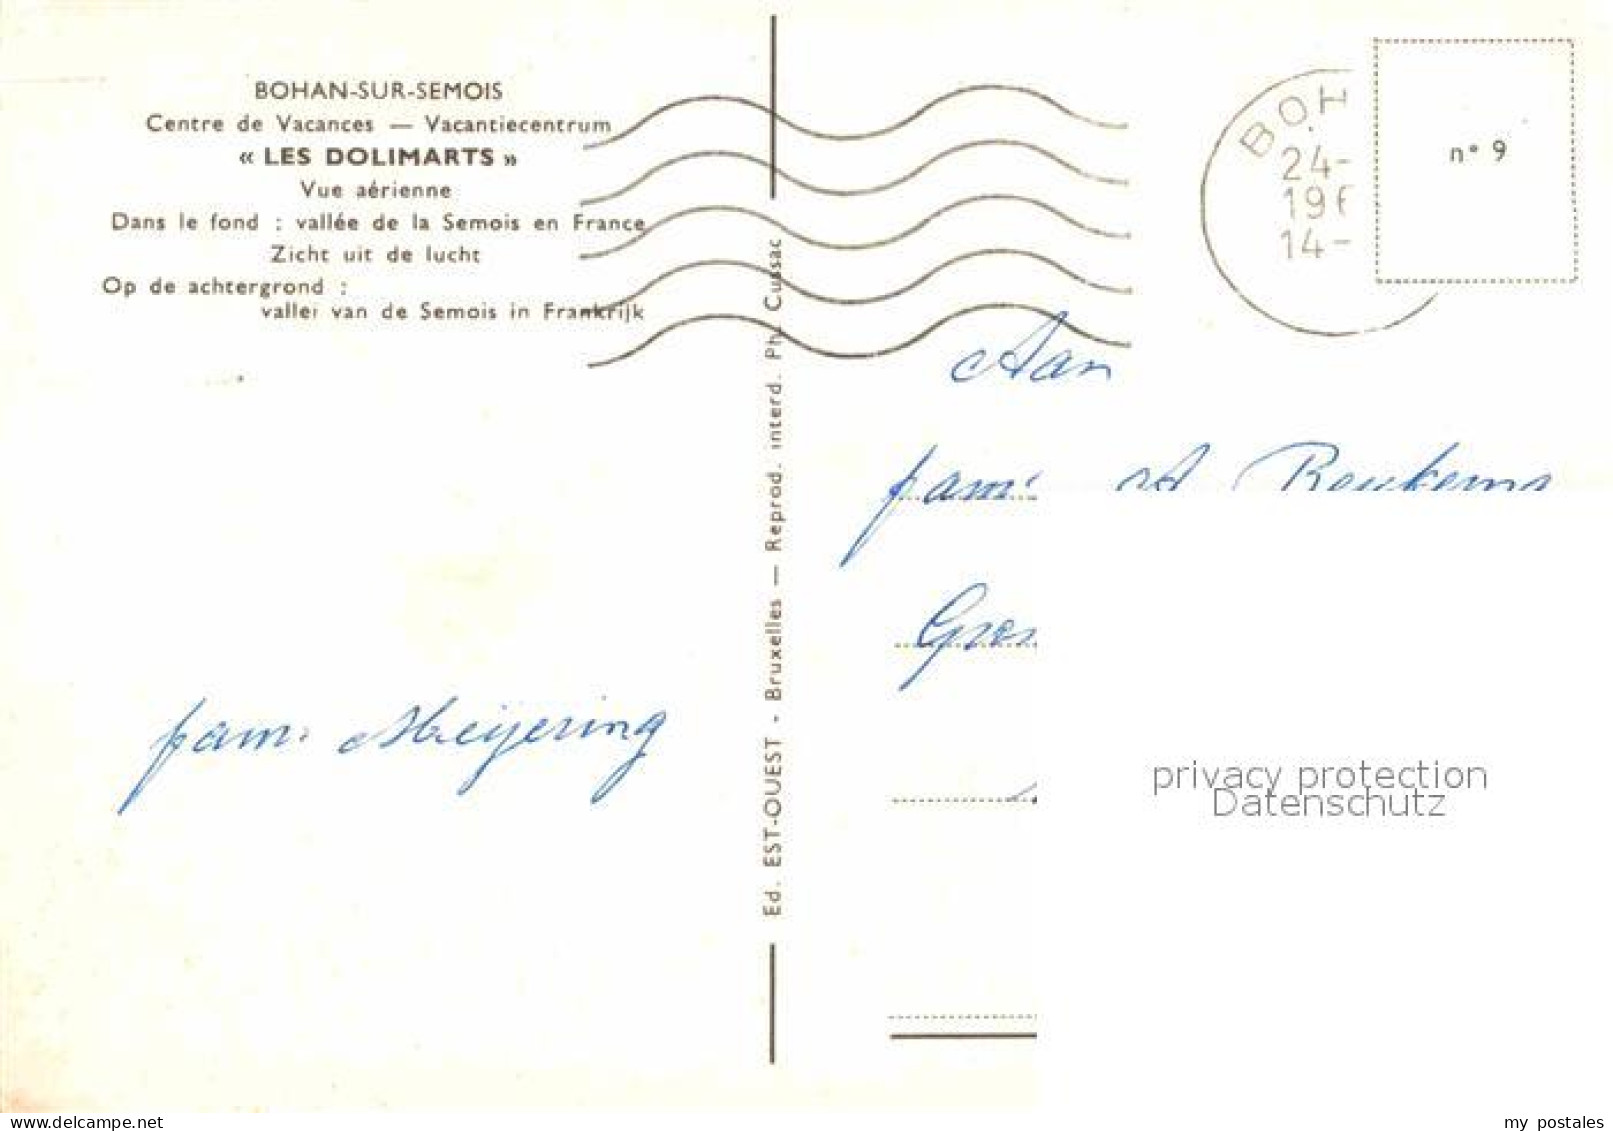 BOHAN-SUR-SEMOIS
Centre de Vacances — Vacantiecentrum
« LES DOLIMARTS »
Vue aérienne
Dans le fond : vallée de la Semois en France
Zicht uit de lucht
Op de achtergrond :
vallei van de Semois in Frankrijk
fam. Meijering
Ed. EST-OUEST - Bruxelles — Reprod. interd. Ph. Cussac
BOH
24-
196
14-
n° 9
Aan
fam. A Reukema
privacy protection
Datenschutz
www.delcampe.net
my_postales